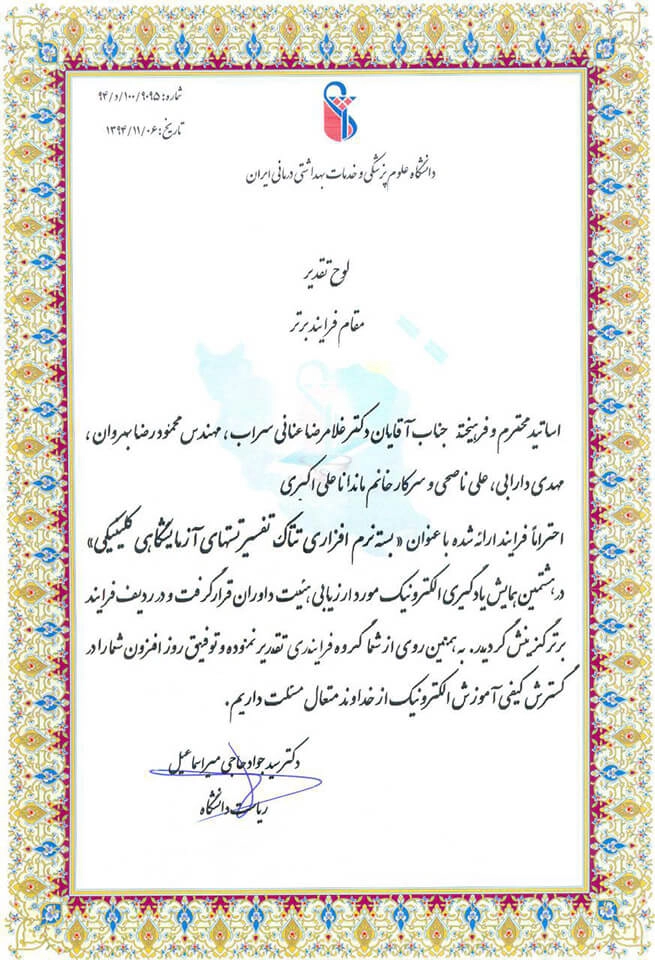 شماره: ۹۴/د/۱۰۰/۹۰۹۵
تاریخ: ۱۳۹۴/۱۱/۰۶
دانشگاه علوم پزشکی و خدمات بهداشتی درمانی ایران
لوح تقدیر
مقام فرایند برتر
اساتید محترم و فرهیخته جناب آقایان دکتر غلامرضا عنانی سراب، مهندس محمود رضا بهروان،
مهدی دارابی، علی ناصحی و سرکار خانم ماندانا علی اکبری
احتراماً فرایند ارائه شده با عنوان «بسته نرم افزاری تتاک تفسیر تستهای آزمایشگاهی کلینیکی»
در هشتمین همایش یادگیری الکترونیک مورد ارزیابی هئیت داوران قرار گرفت و در ردیف فرایند
برتر گزینش گردید. به همین روی از شما گروه فرایندی تقدیر نموده و توفیق روز افزون شما را در
گسترش کیفی آموزش الکترونیک از خداوند متعال مسئلت داریم.
دکتر سید جواد حاجی میراسماعیل
ریاست دانشگاه